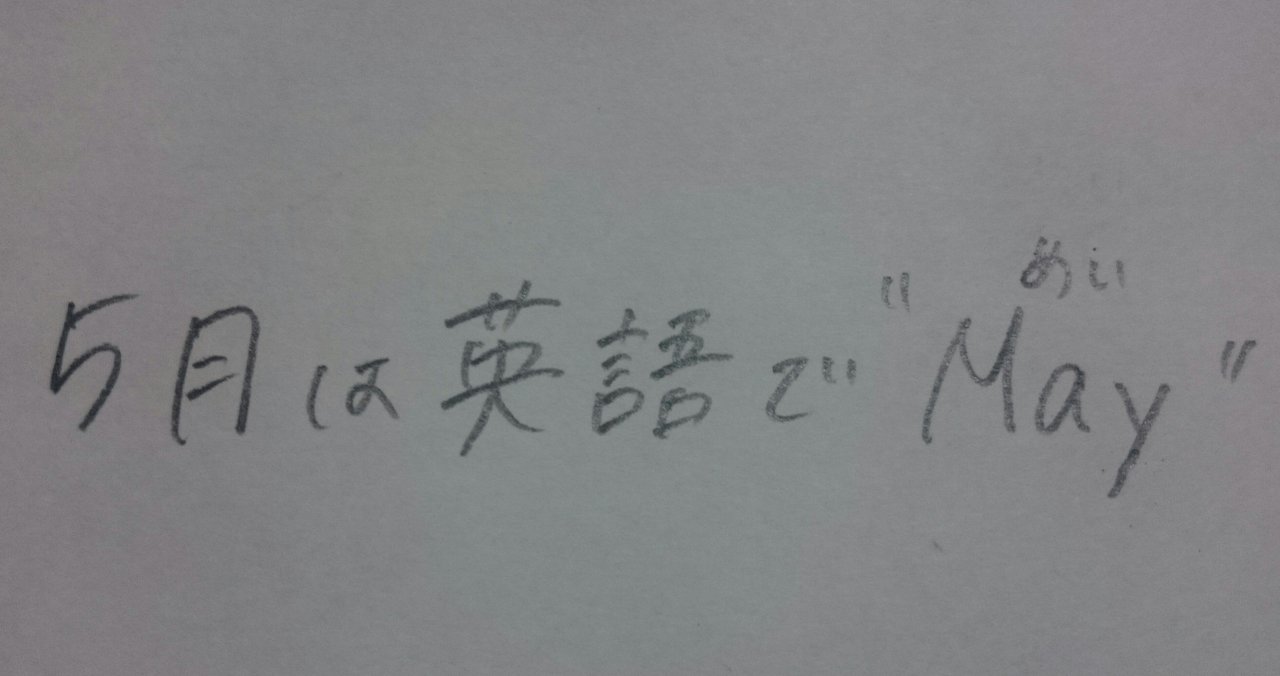 めい
5月は英語で"May"